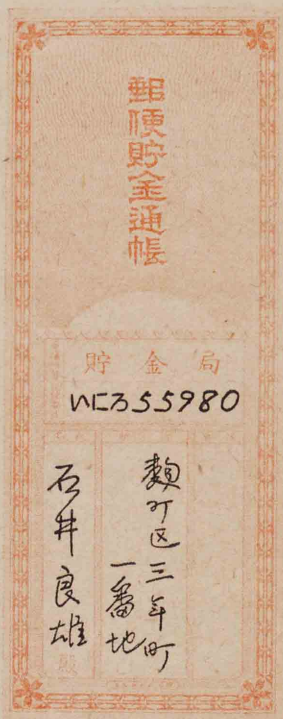 郵便貯金通帳
貯金局
いにろ55980
麹町区三年町
一番地
石井良雄殿